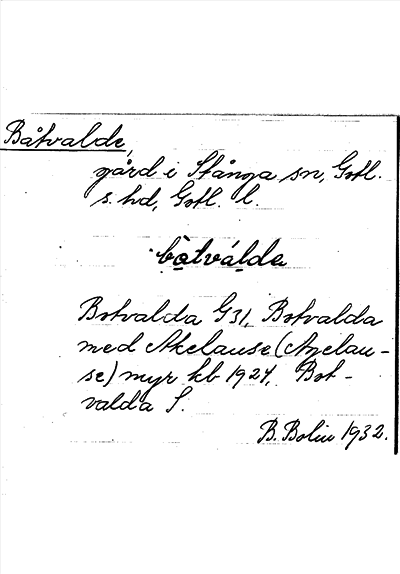 Båtvalde,
gård i Stånga sn, Gotl.
s. hd, Gotl. l.
bòtválda
Botvalda G31, Botvalda
med Akelause (Agelau-
se) myr kb 1927, Bot-
valda S.
B. Bolin 1932.